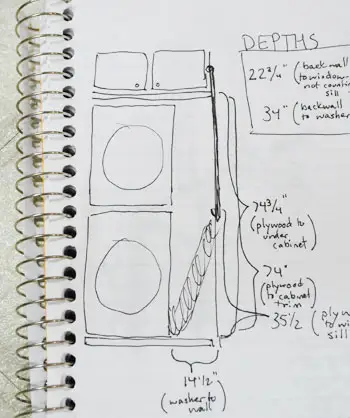 DEPTHS
22 3/4" (backwall
to window
not counting
sill
34" (backwall
to washer
74 3/4"
(plywood to
under
cabinet)
74"
(plywood
to cabinet
trim)
35 1/2 (
sill
14 1/2"
(washer to
wall)